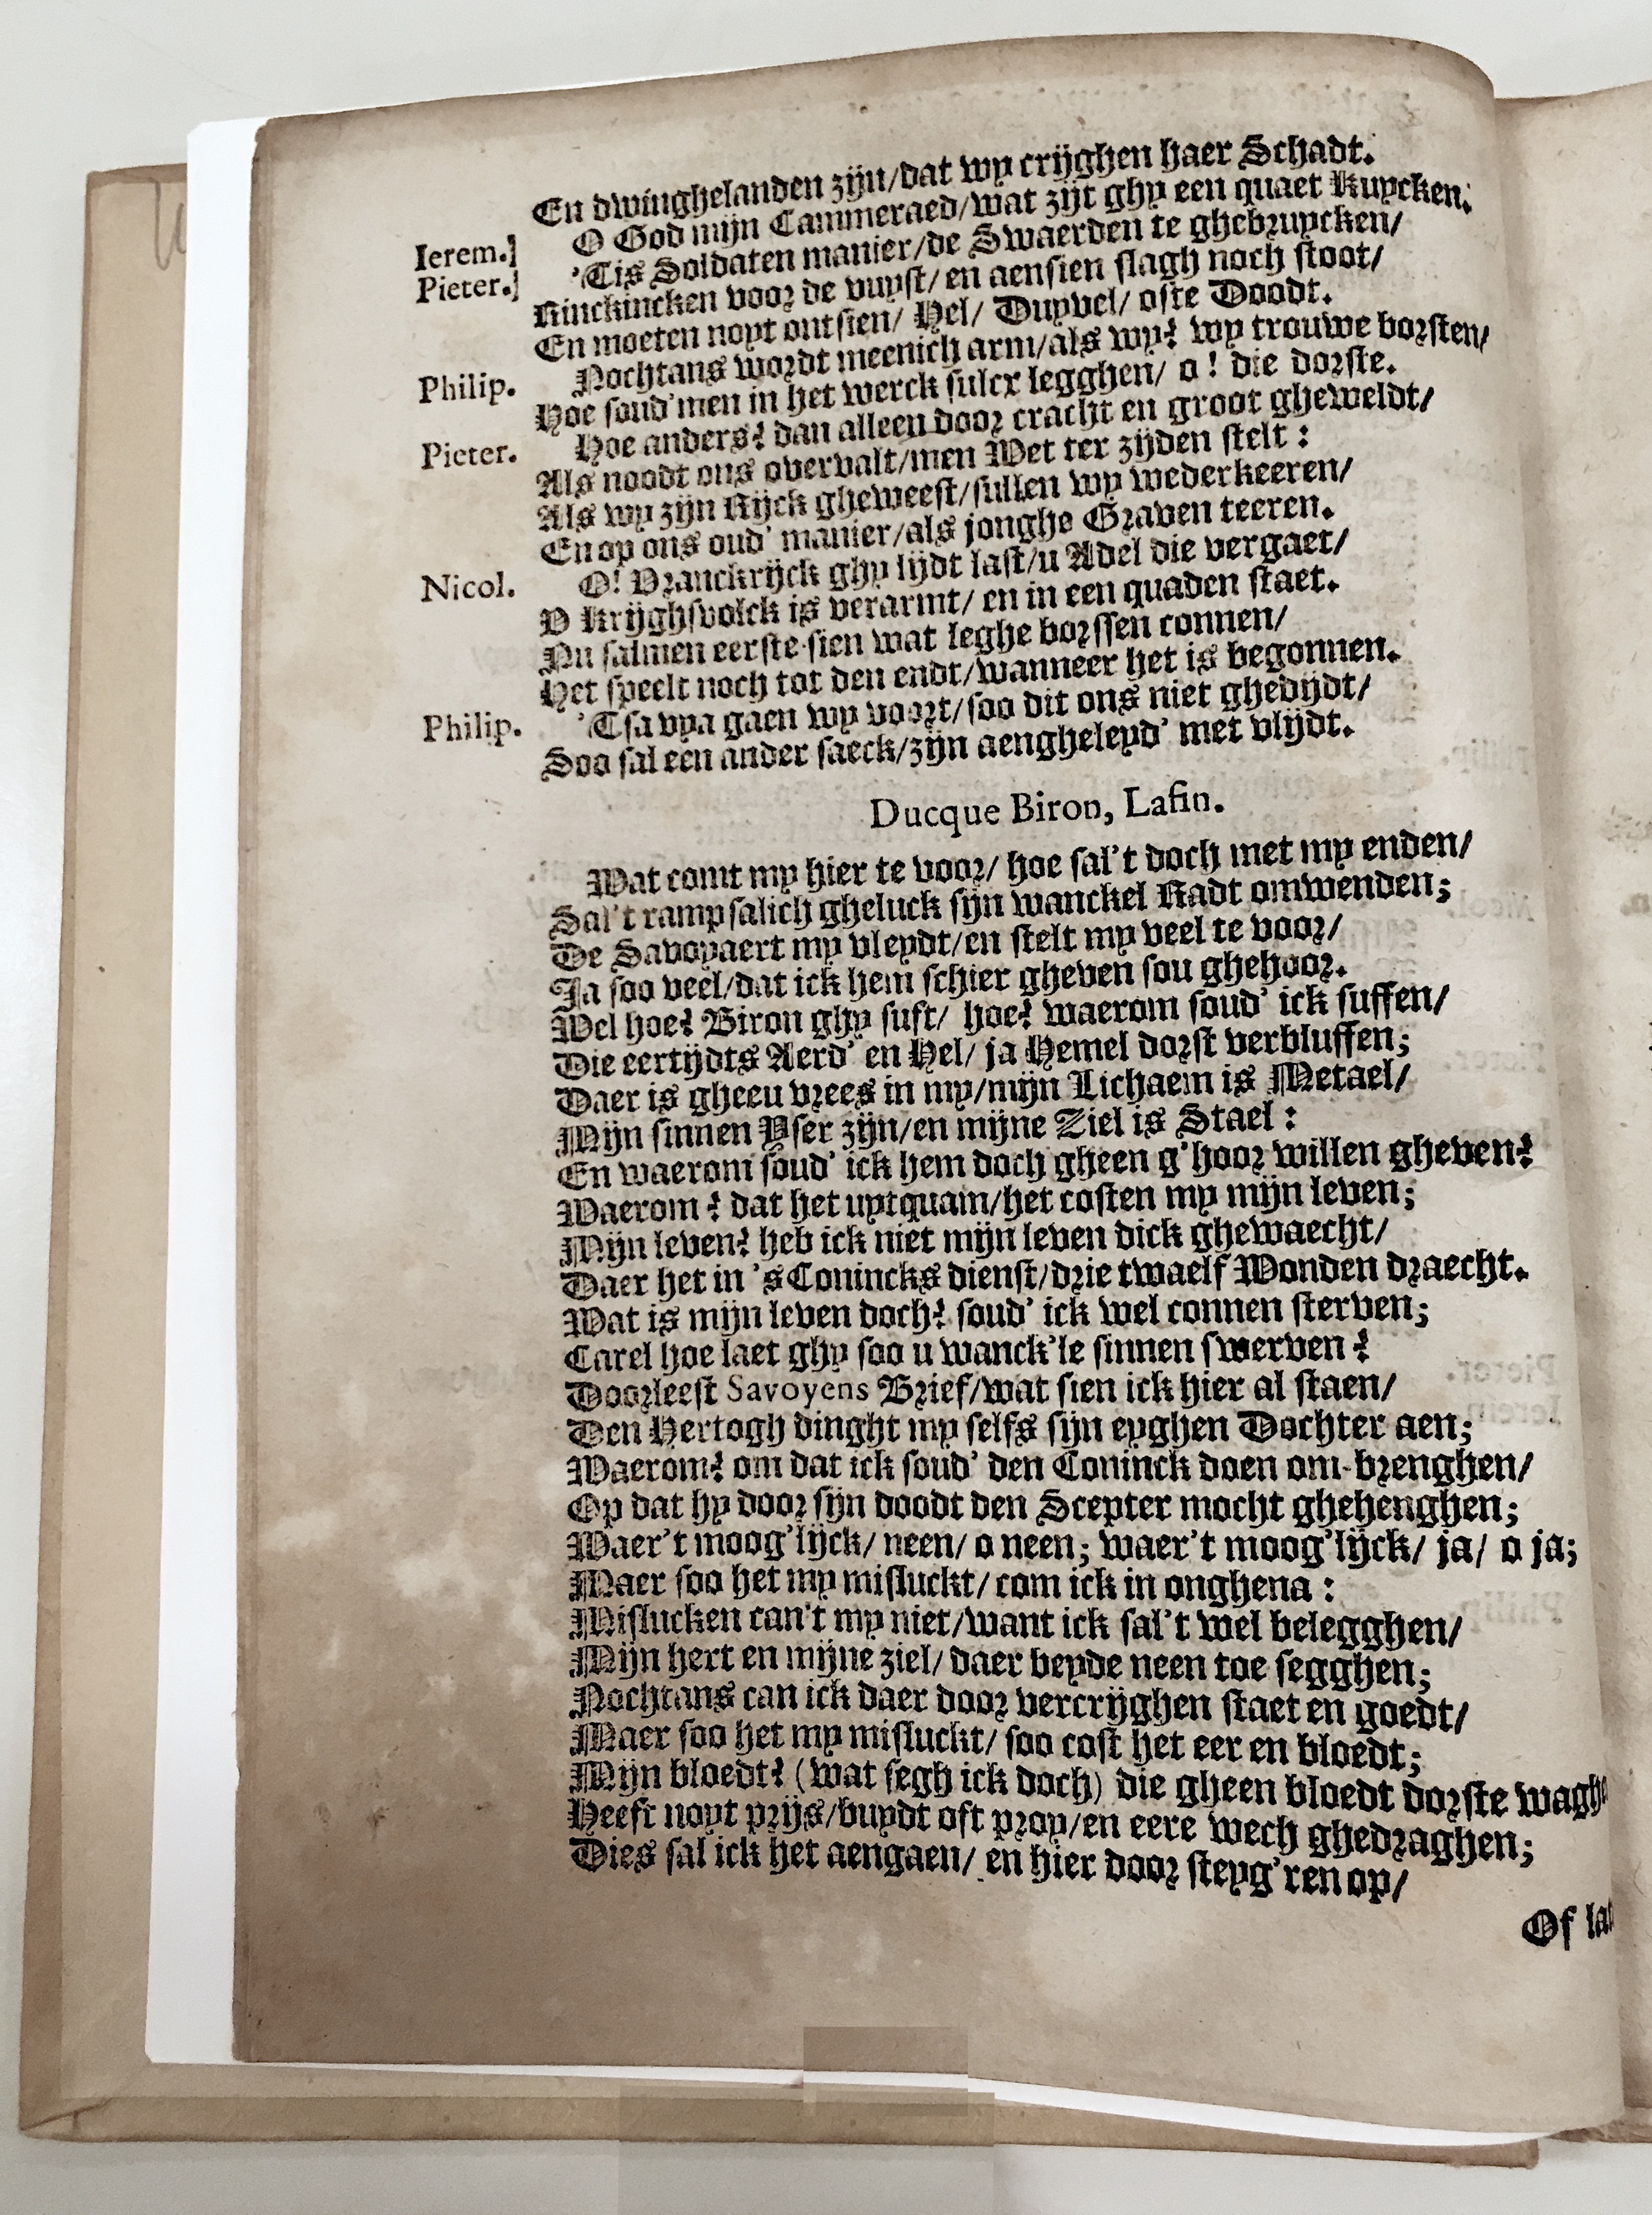 En dwinghelanden zijn/dat wy crijghen haer Schadt.
Ierem.] O God mijn Cammeraed/wat zijt ghy een quaet Kuycken.
Pieter.] 'Tis Soldaten manier/de Swaerden te ghebruycken/
Rinckincken voor de vuyst/en aensien slagh noch stoot/
En moeten noyt ontsien/ Hel/ Duyvel/ ofte Doodt.
Philip. Nochtans wordt meenich arm/als wy? wy trouwe borsten/
Hoe soud'men in het werck sulcx legghen/ o! die dorste.
Pieter. Hoe anders? dan alleen door cracht en groot gheweldt/
Als noodt ons overvalt/men Wet ter zijden stelt:
Als wy zijn Rijck gheweest/sullen wy wederkeeren/
En op ons oud' manier/als jonghe Graven teeren.
Nicol. O! Vranckrijck ghy lijdt last/u Adel die vergaet/
V Krijghsvolck is verarmt/ en in een quaden staet.
Nu salmen eerste sien wat leghe borssen connen/
Het speelt noch tot den endt/wanneer het is begonnen.
Philip. 'Tsa vya gaen wy voort/soo dit ons niet ghedijdt/
Soo sal een ander saeck/zijn aengheleyd' met vlijdt.
Ducque Biron, Lafin.
Wat comt my hier te voor/ hoe sal't doch met my enden/
Sal't rampsalich gheluck sijn wanckel Radt omwenden;
De Savoyaert my vleydt/en stelt my veel te voor/
Ja soo veel/dat ick hem schier gheven sou ghehoor.
Wel hoe? Biron ghy suft/ hoe? waerom soud' ick suffen/
Die eertijdts Aerd' en Hel/ ja Hemel dorst verbluffen;
Daer is gheen vrees in my/mijn Lichaem is Metael/
Mijn sinnen Yser zijn/en mijne Ziel is Stael:
En waerom soud' ick hem doch gheen g'hoor willen gheven?
Waerom? dat het uytquam/het costen my mijn leven;
Mijn leven? heb ick niet mijn leven dick ghewaecht/
Daer het in 'sConincks dienst/drie twaelf Wonden draecht.
Wat is mijn leven doch? soud' ick wel connen sterven;
Carel hoe laet ghy soo u wanck'le sinnen swerven?
Doorleest Savoyens Brief/wat sien ick hier al staen/
Den Hertogh dinght my selfs sijn eyghen Dochter aen;
Waerom? om dat ick soud' den Coninck doen om-brenghen/
Op dat hy door sijn doodt den Scepter mocht ghehenghen;
Waer't moog'lijck/ neen/ o neen; waer't moog'lijck/ ja/ o ja;
Maer soo het my misluckt/ com ick in onghena:
Mislucken can't my niet/want ick sal't wel belegghen/
Mijn hert en mijne ziel/ daer beyde neen toe segghen;
Nochtans can ick daer door vercrijghen staet en goedt/
Maer soo het my misluckt/ soo cost het eer en bloedt;
Mijn bloedt? (wat segh ick doch) die gheen bloedt dorste wagh
Heeft noyt prijs/buydt oft proy/en eere wech ghedraghen;
Dies sal ick het aengaen/ en hier door steyg'ren op/
Of la